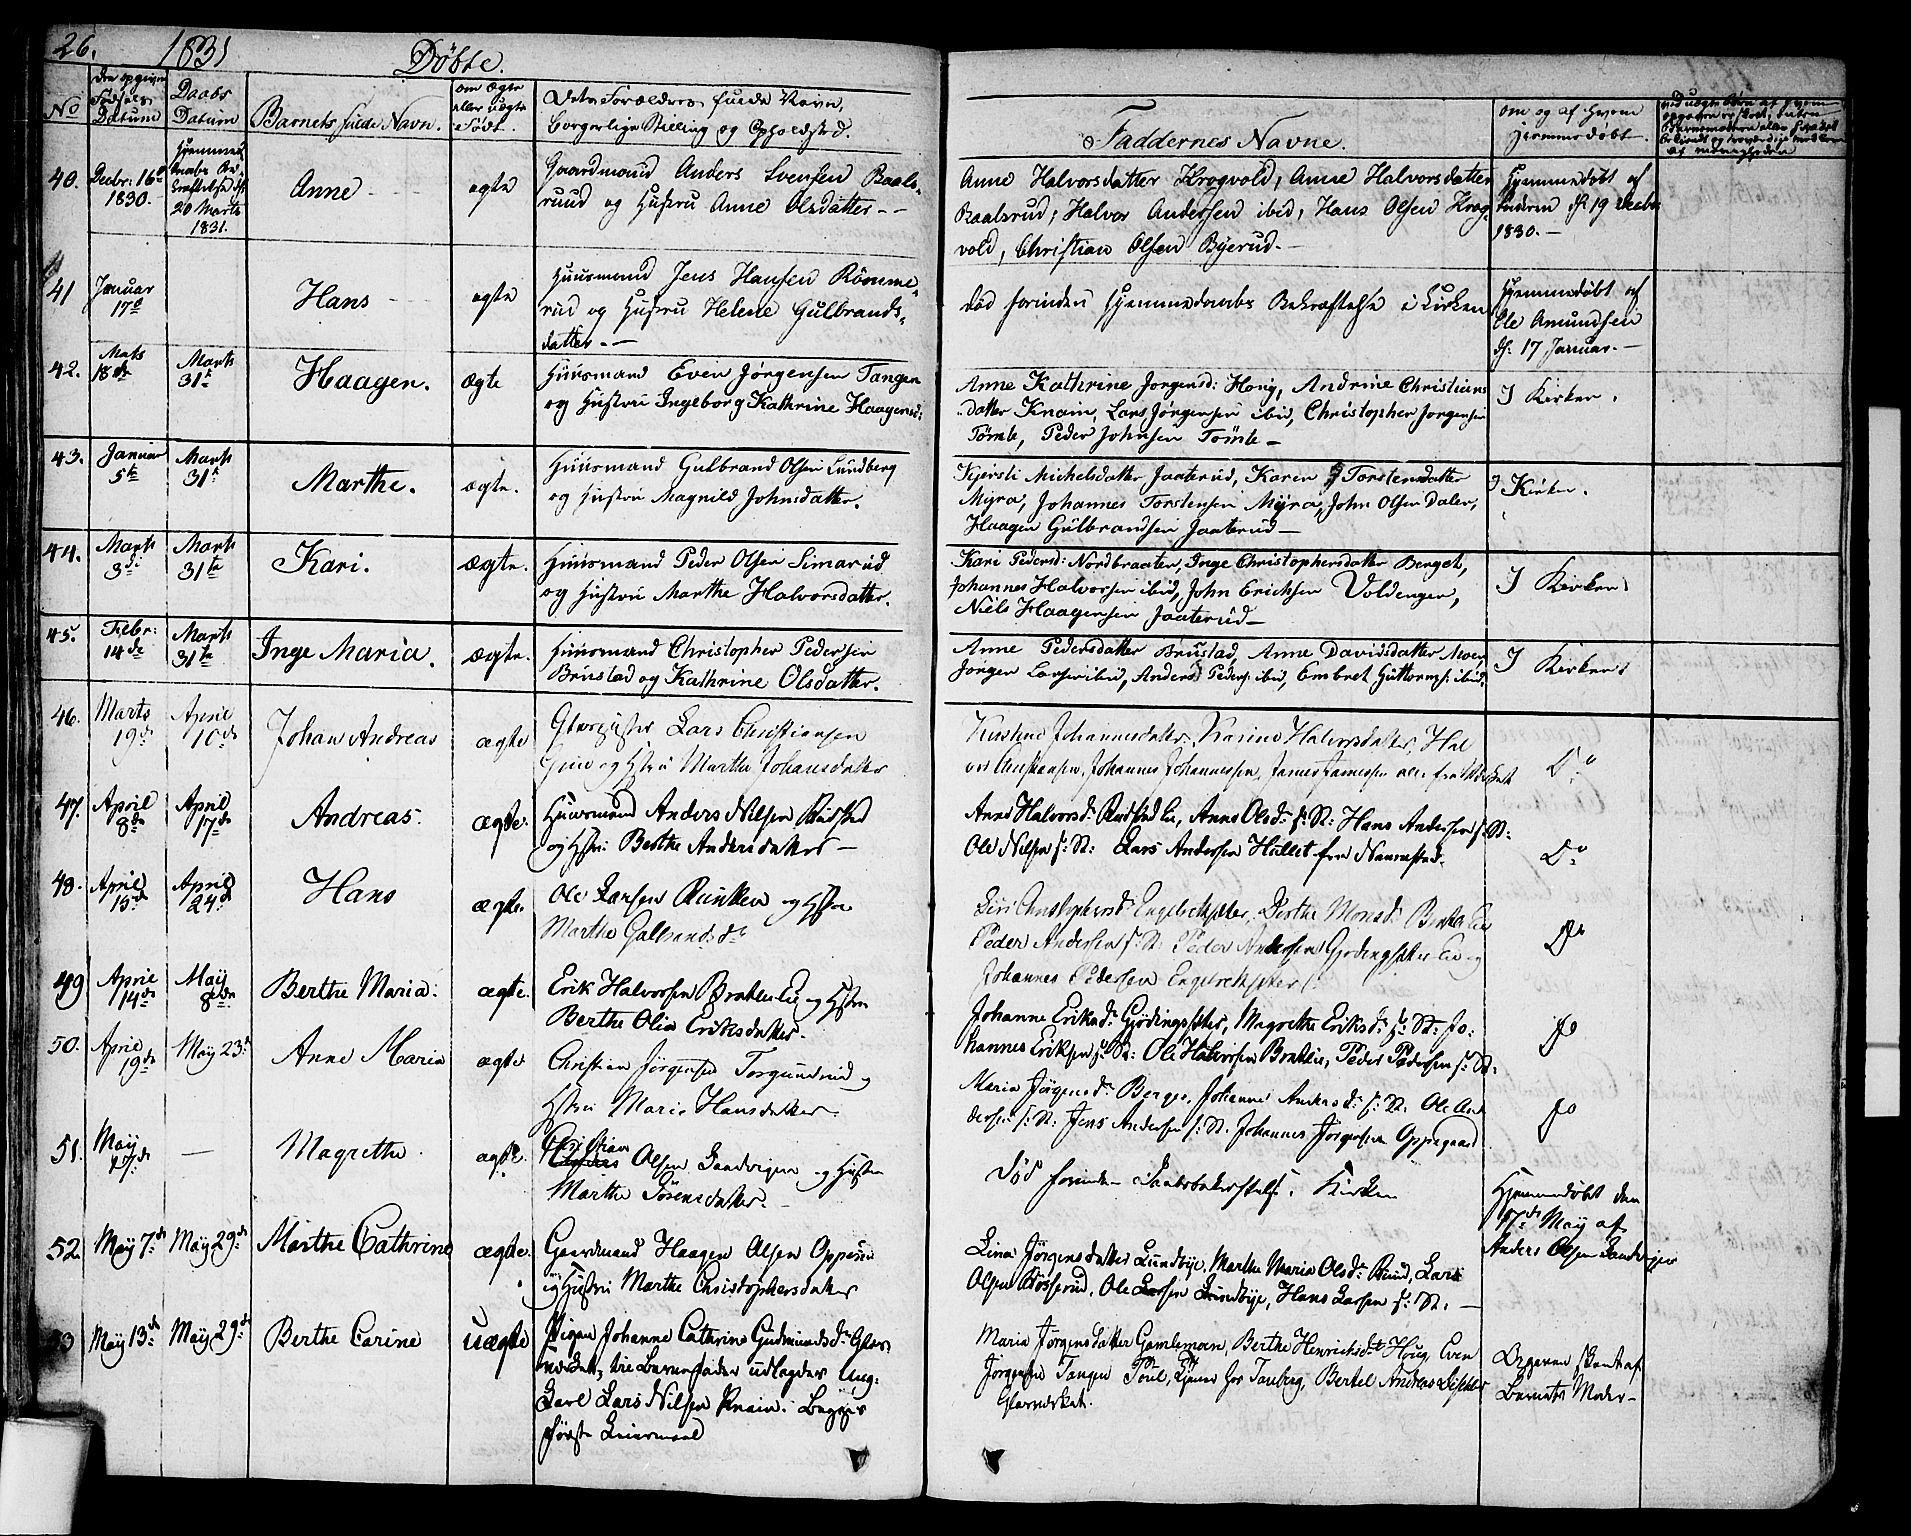 26. 1831 Döbte.
No
den opgivne Fødsels Datum
Daabs Datum
Barnets fulde Navn.
om Ægte eller uægte Født.
Dets Forældres fulde Navn, borgerlige Stilling og Opholdsted.
Faddernes Navne.
om og af Hvem hjemmedøbt.
40. Decbr: 16de 1830.
Hjemmedaabs Bekræftelse d. 20 Marts 1831.
Anne
ægte
Gaardmand Anders Svensen Baals-
ruud og Hustru Anne Olsdatter
Anne Halvorsdatter Krogvold, Anne Halvorsdatter
Baalsrud, Halvor Andersen ibid, Hans Olsen Krog
vold, Christian Olsen Byerud.
Hjemmedøbt af
Faderen d. 19 Decbr
1830.
41 Januar 17de
Hans
ægte
Huusmand Jens Hansen Römme-
rud og Hustru Helene Gulbrands-
datter.
död forinden Hjemmedaabs Bekræftelse i Kirken
Hjemmedøbt af
Ole Amundsen
d. 17 Januar.
42. Marts 18de
Marts 31te
Haagen.
ægte
Huusmand Even Jörgensen Tangen
og Hustru Ingeborg Kathrine Haagensd:
Anne Kathrine Jorgensd: Houg, Andrine Christians
datter Knain, Lars Jörgensen ibid, Christopher Jorgensen
Tömte, Peder Johnsen Tömte
I Kirken.
43. Januar 5te
Marts 31te
Marthe.
ægte.
Huusmand Gulbrand Olsen Lundberg
og Hustru Magnild Johnsdatter.
Kjersti Michelsdatter Jaaterud, Karen Torstensdatter
Myra, Johannes Torstensen Myra, John Olsen Dalen,
Haagen Gulbrandsen Jaaterud
I Kirken.
44. Marts 3de
Marts 31te
Kari.
ægte.
Huusmand Peder Olsen Simarud
og Hustru Marthe Halvorsdatter.
Kari Pedersd: Nordbraaten, Inge Christophersdatter Berget,
Johannes Halvorsen ibid, John Erichsen Voldengen,
Niels Haagensen Jaaterud
I Kirken
45. Febr: 14de
Marts 31te
Inge Maria.
ægte.
Huusmand Christopher Pedersen
Brustad og Kathrine Olsdatter.
Anne Pedersdatter Brustad, Anne Davidsdatter Moen,
Jörgen Larsen ibid, Anders Peders: ibid, Embret Guttorms: ibid.
I Kirken
46. Marts 19de
April 10de
Johan Andreas
ægte
Lars Christiansen
og Hstru Marthe Johansdatter
Johannesdatter, Karine Halvorsdatter, Hal
vor Christiansen, Johannes Johannessen, James Jamessen alle fra
Do
47. April 8de
April 17de
Andreas.
ægte.
Huusmand Anders Nilsen Rudsted
og Hstru: Berthe Andersdatter
Anne Halvorsdr Rudsted Eie, Anne Olsdr f: St: Hans Andersen f: St:
Ole Nilsen f: St: Lars Andersen Hullet fra Nannestad.
Do
48. April 15de
April 24de
Hans
ægte.
Ole Larsen Runken og Hstru
Marthe Gulbrandsdr
Siri Christophersdr Engebretsæter, Berthe Monsdr
Peder Andersen f: St: Peder Andersen Gjödingsæter Eie og
Johannes Pedersen Engebretsæter
Do
49 April 14de
May 8de
Berthe Maria.
ægte.
Erik Halvorsen Bratlie Eie og Hstru
Berthe Olia Eriksdatter.
Johanne Eriksdr Gjödingsæter, Magrethe Eriksdr f: St: Jo-
hannes Eriksen f: St: Ole Halvorsen Bratlie, Peder Pedersen f: St:
Do
50. April 19de
May 23de
Anne Maria
ægte
Christian Jörgensen Torgunrud og
Hstru Marie Hansdatter.
Maria Jörgensdr Berger, Johanne Andersdr f: St. Ole An
dersen f: St: Jens Andersen f: St. Johannes Jörgensen Oppegaard
Do
51. May 17de
Magrethe
ægte.
Christian
Anders Olsen Sandvigen og Hstru
Marthe Sörensdatter.
Död forinden Daabsbekræftelse i Kirken
Hjemmedøbt den
17de May af
Anders Olsen Sandvigen
52. May 7de
May 29de
Marthe Cathrine
ægte.
Gaardmand Haagen Olsen Oppsun
og Hustru Marthe Christophersdatter
Lina Jörgensdatter Lundbye, Marthe Maria Olsdr Ruud, Lars
Olsen Bösserud, Ole Larsen Lundbye, Hans Larsen f: St.
53 May 13de
May 29de
Berthe Carine
uægte
Pigen Johanne Cathrine Gudmundsdr Glas-
værket, til Barnefader udlagdes Ung-
karl Lars Nilsen Knain. Begges
förste Leiermaal
Maria Jörgensdatter Gamlemoen, Berthe Henricksdr Houg, Even
Jörgensen Tangen, Poul, tjener hos Tanberg, Bertel Andreas
Glasværket.
Opgaven skeet af
Barnets Moder